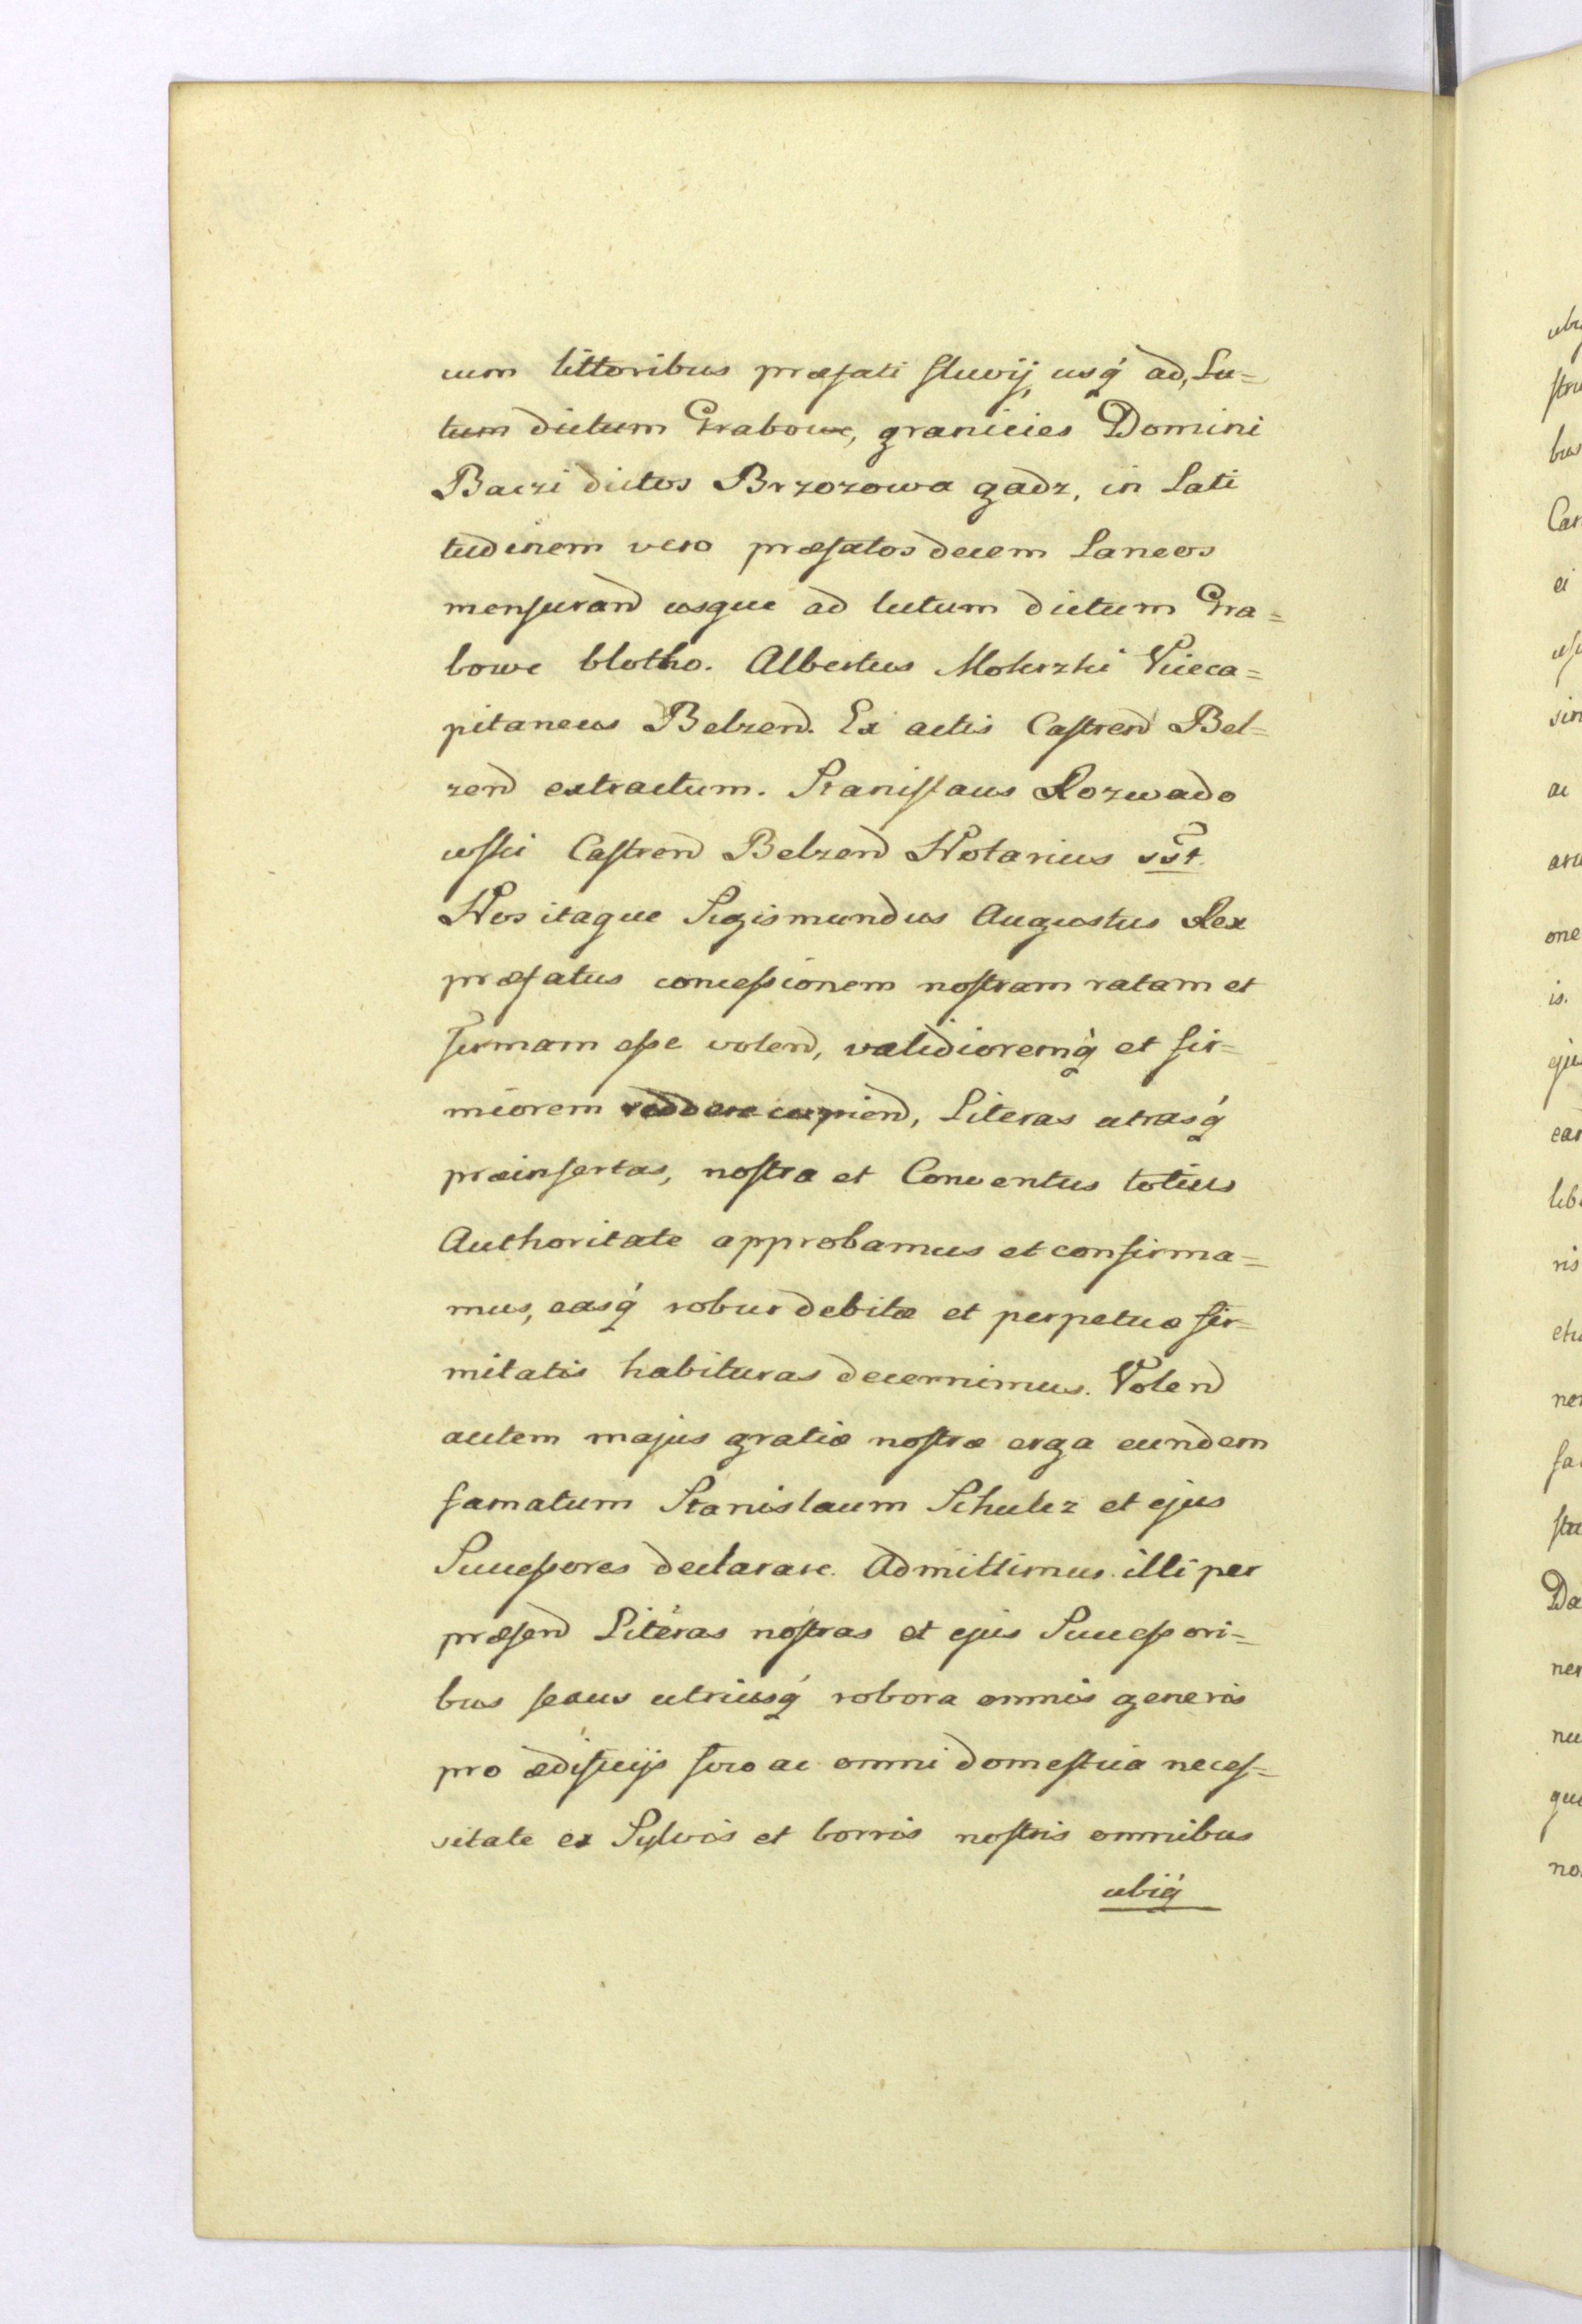 cum littoribus præfati fluvij usq́ ad, Lu=
tum dictum Grabowe, granicies Domini
Baczi dictos Brzozowa gadz, in Lati
tudinem vero præfatos decem Laneos
mensurand usque ad lutum dictum Gra=
bowe blotho. Albertus Mokrzki Vieca=
pitaneus Belzend. Ex actis Castrend Bel=
zend extractum. Stanislaus Rozwado
wski Castrend Belzend Notarius sst.
Nos itaque Sigismundus Augustus Rex
præfatus concessionem nostram ratam et
firmam esse volend, validioremq́ et fir=
miorem reddere cupiend, Literas utrasq́
præinsertas, nostra et Conventus totius
Authoritate approbamus et confirma=
mus, easq́ robur debitæ et perpetuæ fir=
mitatis habituras decernimus. Volend
autem majus gratiæ nostræ erga eundem
famatum Stanislaum Schulcz et ejus
Successores declarare. Admittimus illi per
præsend Literas nostras et ejus Successori=
bus sexus utriusq́ robora omnis generis
pro ædificijs foro ac omni domestica neces=
sitate ex Sylvis et borris nostris omnibus
ubiq́